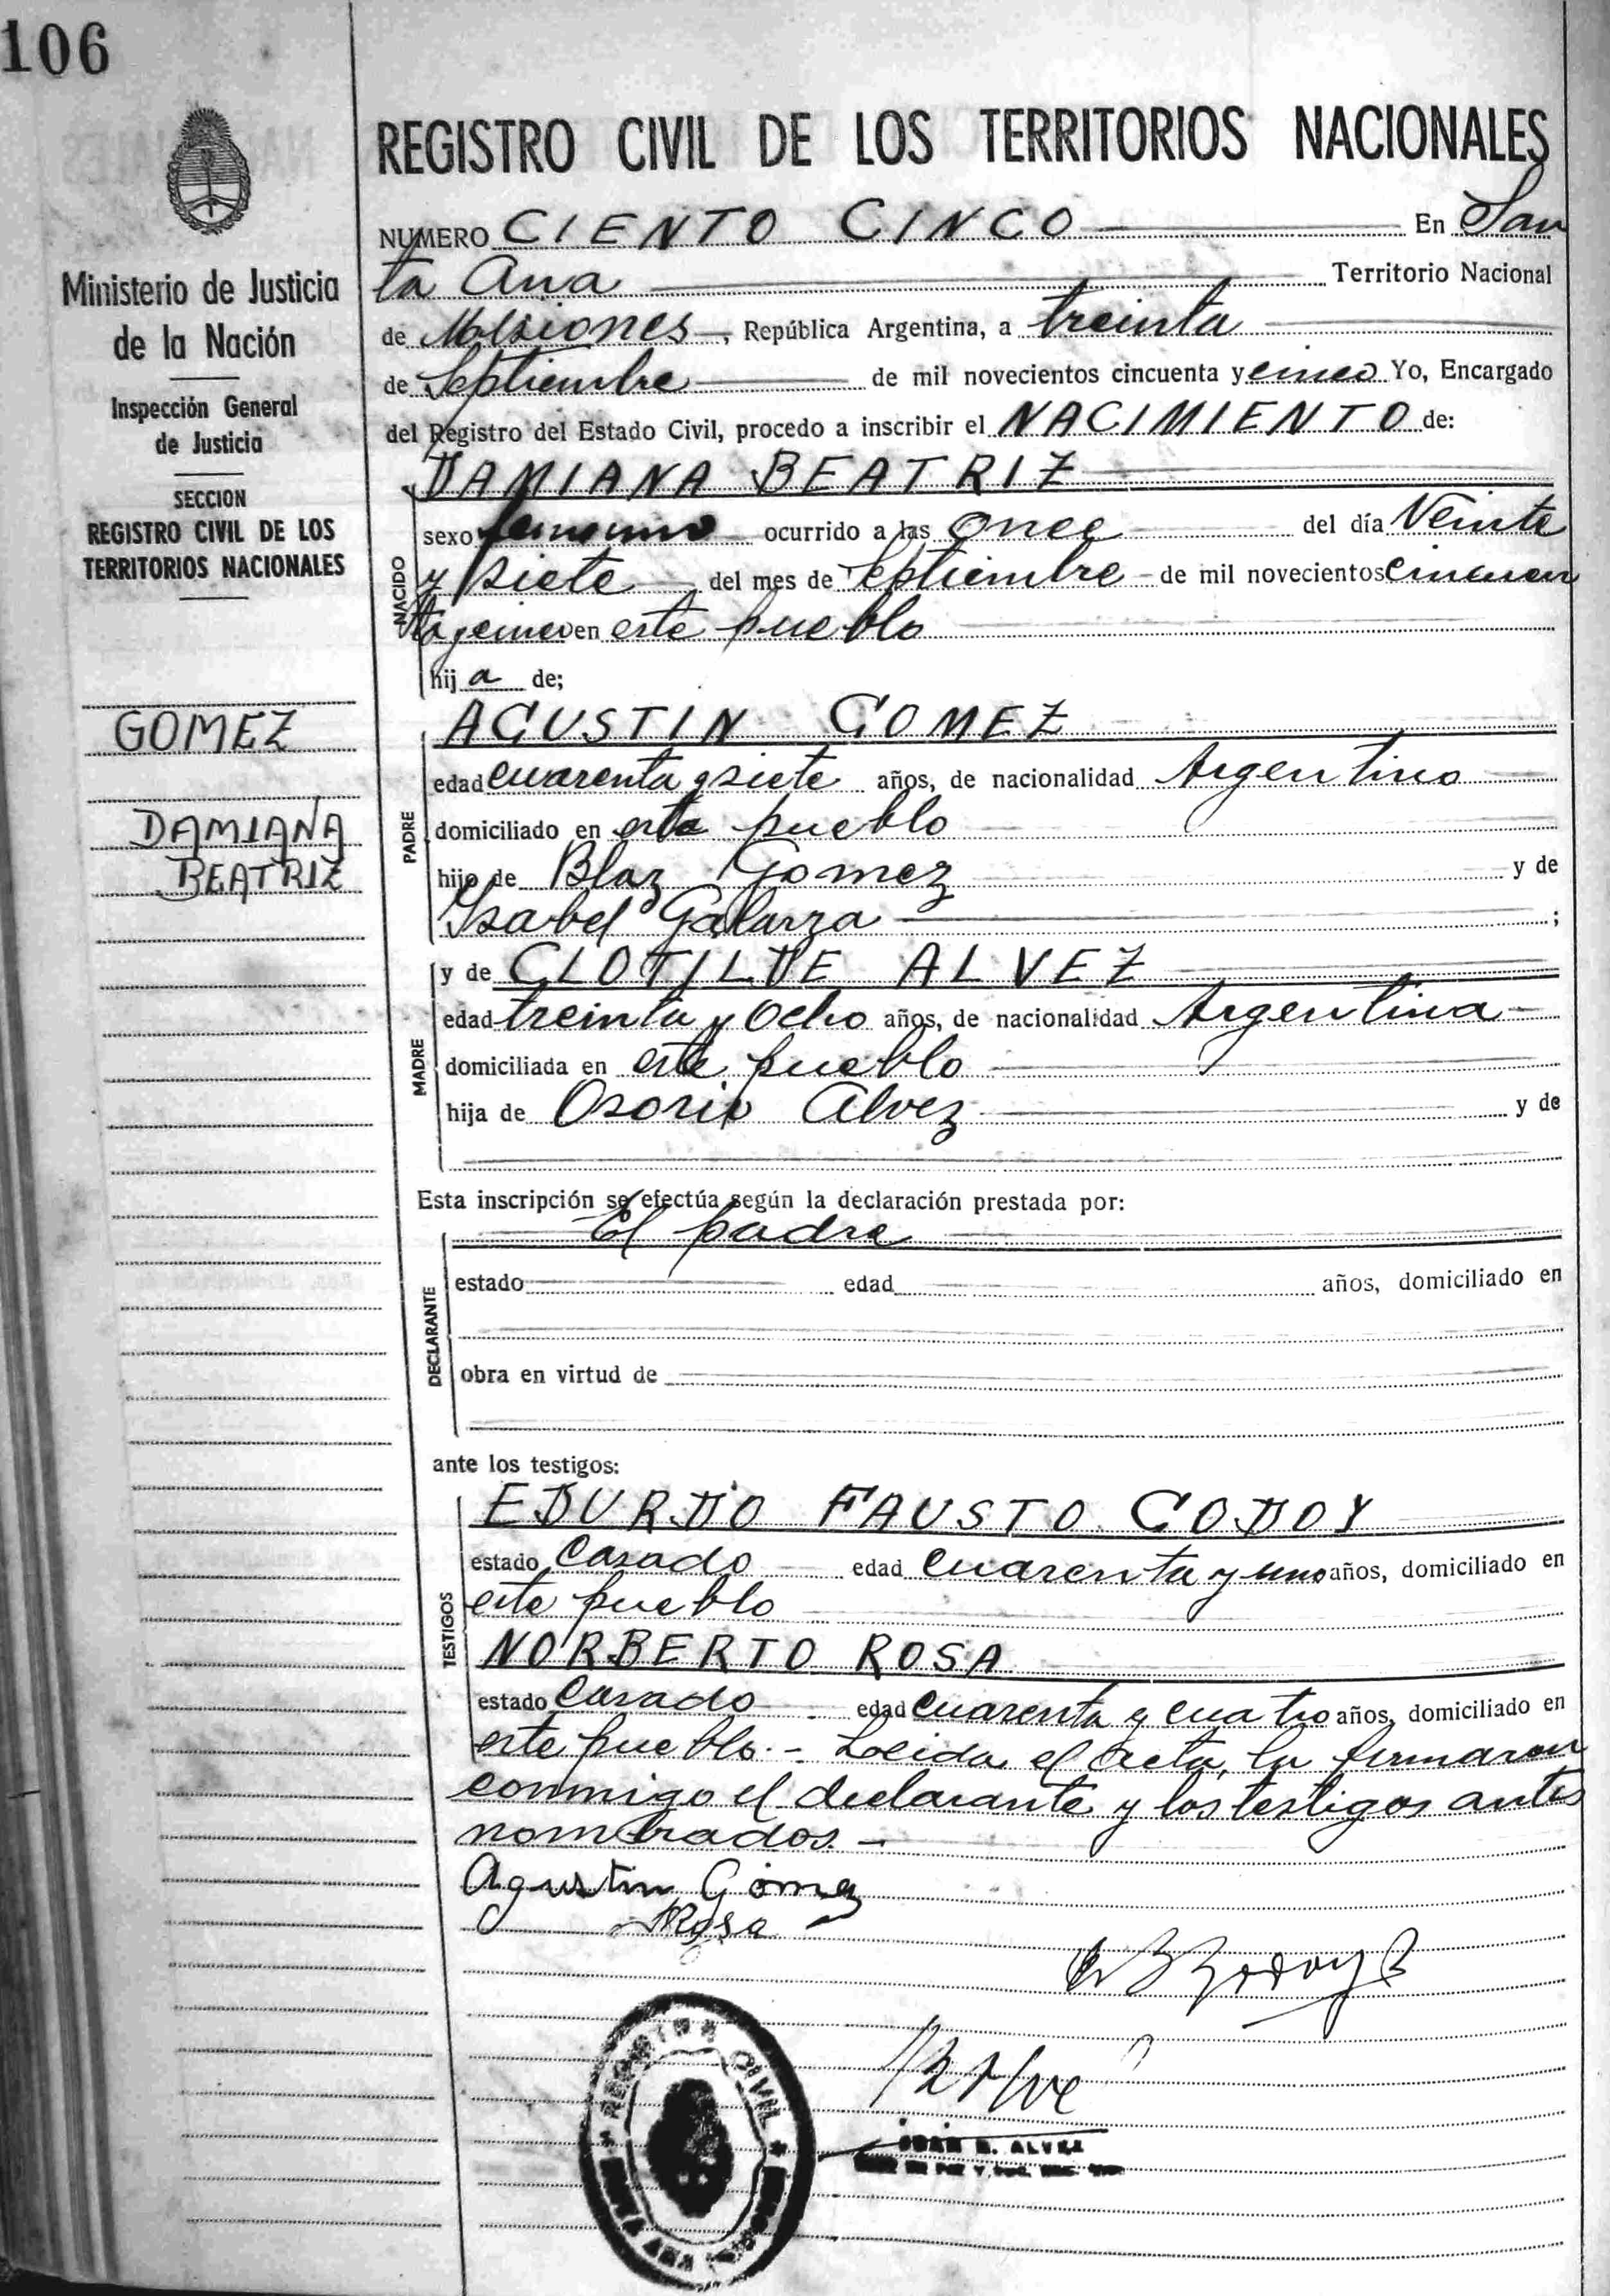 106
Ministerio de Justicia
de la Nación
Inspección General
de Justicia
SECCION
REGISTRO CIVIL DE LOS
TERRITORIOS NACIONALES
GOMEZ
DAMIANA
BEATRIZ
REGISTRO CIVIL DE LOS TERRITORIOS NACIONALES
NUMERO CIENTO CINCO En San
ta Ana Territorio Nacional
de Misiones, República Argentina, a treinta
de Septiembre de mil novecientos cincuenta y cinco Yo, Encargado
del Registro del Estado Civil, procedo a inscribir el NACIMIENTO de:
DAMIANA BEATRIZ
NACIDO
sexo femenino ocurrido a las Once del día Veinte
y siete del mes de Septiembre de mil novecientos cincuen
ta y cinco en este pueblo
hij a de;
AGUSTIN GOMEZ
PADRE
edad cuarenta y siete años, de nacionalidad Argentino
domiciliado en este pueblo
hijo de Blaz Gomez y de
Ysabel Galarza ;
y de CLOTILDE ALVEZ
MADRE
edad treinta y Ocho años, de nacionalidad Argentina
domiciliada en este pueblo
hija de Osorio Alvez y de
Esta inscripción se efectúa según la declaración prestada por:
El padre
DECLARANTE
estado edad años, domiciliado en
obra en virtud de
ante los testigos:
EDURDO FAUSTO GODOY
TESTIGOS
estado Casado edad cuarenta y uno años, domiciliado en
este pueblo
NORBERTO ROSA
estado Casado edad cuarenta y cuatro años, domiciliado en
este pueblo.- Leida el acta, la firmaron
conmigo el declarante y los testigos antes
nombrados.-
Agustin Gómez
NRosa
REGISTRO CIVIL
SANTA ANA
JUAN B. ALVEZ